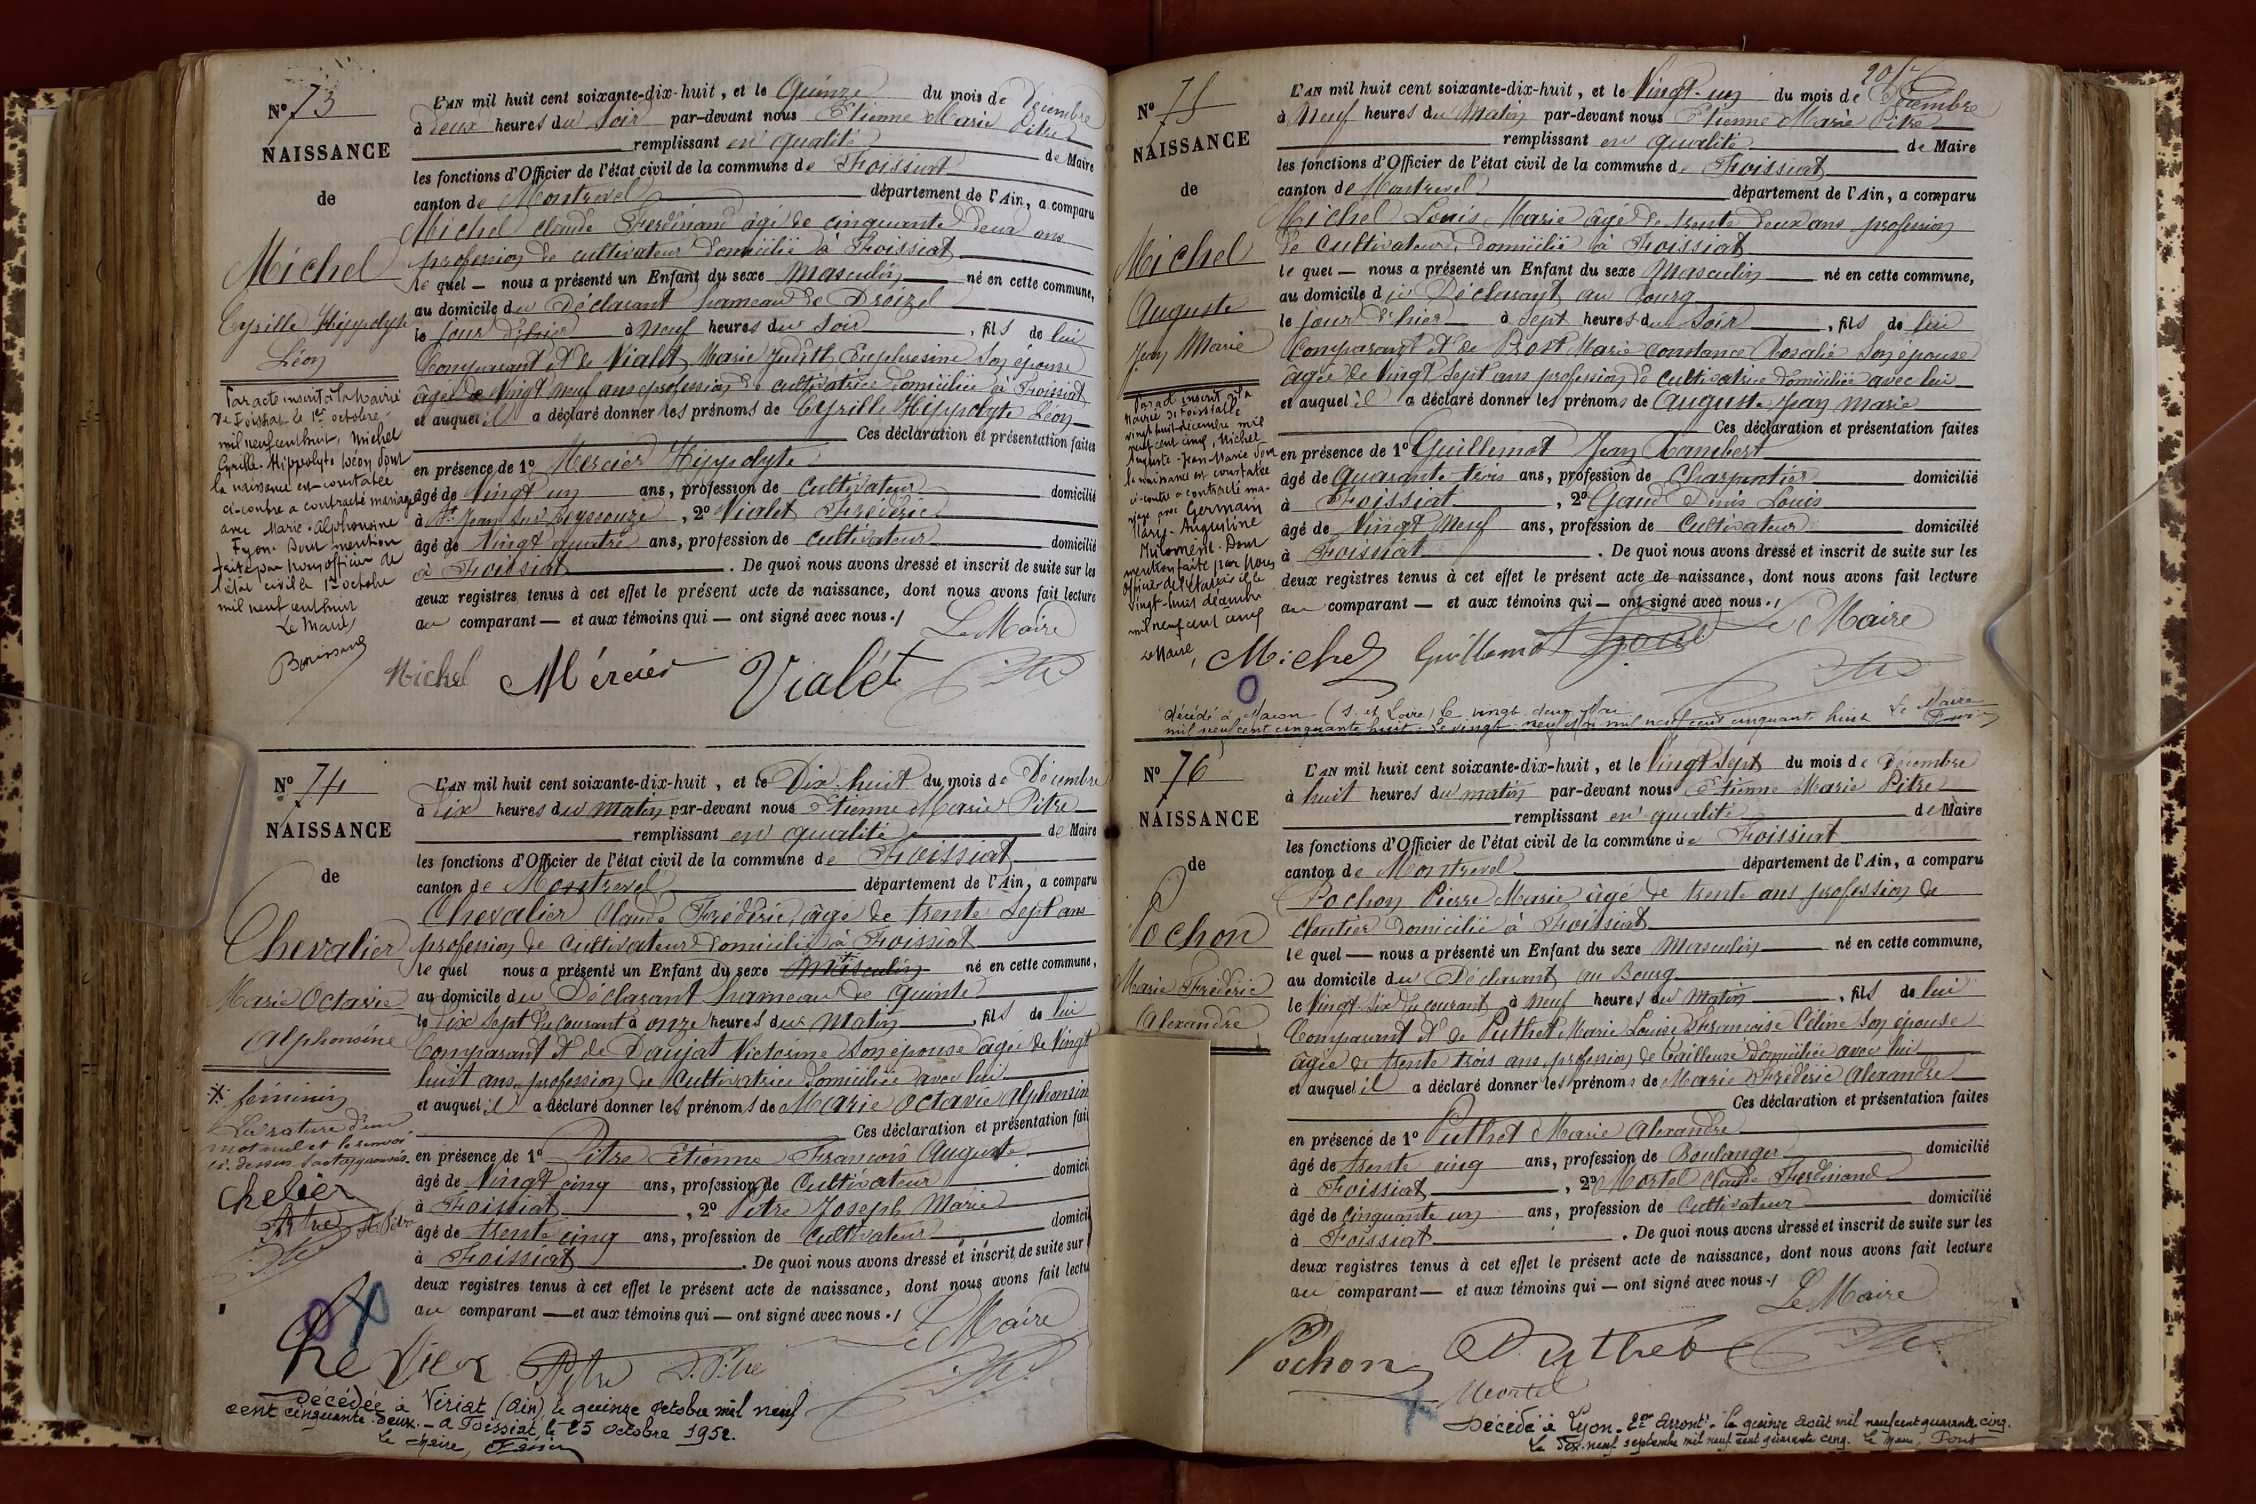 Nº 73
NAISSANCE
de
Michel
Cyrille Hippolyte
Léon
Par acte inscrit à la Mairie
de Foissiat le 1er octobre
mil neuf cent huit, Michel
Cyrille Hippolyte Léon dont
la naissance est constatée
ci-contre a contracté mariage
avec Marie Alphonsine
Fyon. Dont mention
faite par nous officier de
l'état civil le 1er octobre
mil neuf cent huit
Le Maire
L'AN mil huit cent soixante-dix-huit, et le Quinze du mois de Décembre
à deux heures du Soir par-devant nous Etienne Marie Pitre
remplissant en qualité de Maire
les fonctions d'Officier de l'état civil de la commune de Foissiat
canton de Montrevel département de l'Ain, a comparu
Michel Claude Ferdinand âgé de cinquante deux ans
profession de cultivateur domicilié à Foissiat
lequel — nous a présenté un Enfant du sexe Masculin né en cette commune,
au domicile du Déclarant hameau de Droizel
le jour d'hier à neuf heures du Soir, fils de lui
Comparant et de Vialet Marie Judith Euphrosine son épouse
âgée de Vingt neuf ans profession de cultivatrice domiciliée à Foissiat
et auquel il a déclaré donner les prénoms de Cyrille Hippolyte Léon
Ces déclaration et présentation faites
en présence de 1º Mercier Hippolyte
âgé de Vingt un ans, profession de Cultivateur domicilié
à St Jean sur Reyssouze, 2º Vialet Fréderic
âgé de Vingt quatre ans, profession de cultivateur domicilié
à Foissiat. De quoi nous avons dressé et inscrit de suite sur les
deux registres tenus à cet effet le présent acte de naissance, dont nous avons fait lecture
au comparant — et aux témoins qui — ont signé avec nous./
Le Maire
Michel Mércier Vialét
Nº 74
NAISSANCE
de
Chevalier
Marie Octavie
Alphonsine
* féminin
La rature d'un
mot nul et le renvoi
ci-dessus sont approuvés.
L'AN mil huit cent soixante-dix-huit, et le Dix huit du mois de Décembre
à dix heures du matin par-devant nous Etienne Marie Pitre
remplissant en qualité de Maire
les fonctions d'Officier de l'état civil de la commune de Foissiat
canton de Montrevel département de l'Ain, a comparu
Chevalier Claude Fréderic âgé de trente sept ans
profession de Cultivateur domicilié à Foissiat
lequel nous a présenté un Enfant du sexe Masculin né en cette commune,
au domicile du Déclarant hameau de Quinte
le dix sept du courant à onze heures du Matin, fils de lui
Comparant et de Daujat Victorine son épouse âgée de Vingt
huit ans profession de Cultivatrice domiciliée avec lui
et auquel il a déclaré donner les prénoms de Marie Octavie Alphonsin
Ces déclaration et présentation fait
en présence de 1º Pitre Etienne François Auguste
âgé de Vingt cinq ans, profession de Cultivateur domici
à Foissiat, 2º Pitre Joseph Marie
âgé de trente cinq ans, profession de Cultivateur domicil
à Foissiat. De quoi nous avons dressé et inscrit de suite sur l
deux registres tenus à cet effet le présent acte de naissance, dont nous avons fait lectu
au comparant — et aux témoins qui — ont signé avec nous./
Le Maire
Décédée à Viriat (Ain) le quinze octobre mil neuf
cent cinquante-deux. — A Foissiat, le 25 octobre 1952.
Le Maire,
Nº 75
NAISSANCE
de
Michel
Auguste
Jean Marie
Par acte inscrit à la
Mairie de Foissiat le
vingt huit décembre mil
neuf cent cinq, Michel
Auguste-Jean-Marie dont
la naissance est constatée
ci-contre a contracté ma-
riage avec Germain
Marie-Augustine
Philomène. Dont
mention faite par nous
officier de l'état civil le
vingt-huit décembre
mil neuf cent cinq
Le Maire,
L'AN mil huit cent soixante-dix-huit, et le Vingt-un du mois de Décembre
à Neuf heures du Matin par-devant nous Etienne Marie Pitre
remplissant en qualité de Maire
les fonctions d'Officier de l'état civil de la commune de Foissiat
canton de Montrevel département de l'Ain, a comparu
Michel Louis Marie âgé de trente deux ans profession
de Cultivateur domicilié à Foissiat
lequel — nous a présenté un Enfant du sexe Masculin né en cette commune,
au domicile du Déclarant au Bourg
le jour d'hier à sept heures du Soir, fils de lui
Comparant et de Prost Marie Constance Rosalie son épouse
âgée de Vingt sept ans profession de cultivatrice domiciliée avec lui
et auquel il a déclaré donner les prénoms de Auguste Jean Marie
Ces déclaration et présentation faites
en présence de 1º Guillemot Jean Rambert
âgé de Quarante trois ans, profession de Charpentier domicilié
à Foissiat, 2º Gaud Denis Louis
âgé de Vingt Neuf ans, profession de Cultivateur domicilié
à Foissiat. De quoi nous avons dressé et inscrit de suite sur les
deux registres tenus à cet effet le présent acte de naissance, dont nous avons fait lecture
au comparant — et aux témoins qui — ont signé avec nous./
Le Maire
Michel Guillemot
décédé à Macon (S. et Loire) le vingt deux Mai
mil neuf cent cinquante huit. Le vingt-neuf Mai mil neuf cent cinquante huit Le Maire
Nº 76
NAISSANCE
de
Pochon
Marie Fréderic
Alexandre
L'AN mil huit cent soixante-dix-huit, et le Vingt Sept du mois de Décembre
à huit heures du matin par-devant nous Etienne Marie Pitre
remplissant en qualité de Maire
les fonctions d'Officier de l'état civil de la commune de Foissiat
canton de Montrevel département de l'Ain, a comparu
Pochon Pierre Marie âgé de trente ans profession de
cloutier domicilié à Foissiat
lequel — nous a présenté un Enfant du sexe Masculin né en cette commune,
au domicile du Déclarant au Bourg
le Vingt six du courant à neuf heures du Matin, fils de lui
Comparant et de Puthet Marie Louise Françoise Céline son épouse
âgée de trente trois ans profession de tailleuse domiciliée avec lui
et auquel il a déclaré donner les prénoms de Marie Fréderic Alexandre
Ces déclaration et présentation faites
en présence de 1º Puthet Marie Alexandre
âgé de trente cinq ans, profession de Boulanger domicilié
à Foissiat, 2º Mortel Claude Ferdinand
âgé de cinquante un ans, profession de Cultivateur domicilié
à Foissiat. De quoi nous avons dressé et inscrit de suite sur les
deux registres tenus à cet effet le présent acte de naissance, dont nous avons fait lecture
au comparant — et aux témoins qui — ont signé avec nous./
Le Maire
Pochon Puthet
Mortel
Décédé à Lyon. 2me Arrondt. le quinze Août mil neuf cent quarante cinq.
Le Dix neuf septembre mil neuf cent quarante cinq. Le Maire,